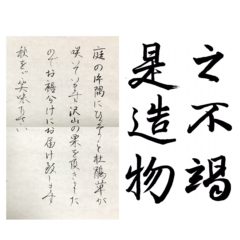 庭の片隅にひっそりと杜鵑草が
咲いています沢山の栗を頂きました
のでお福分けにお届け致します
秋をご笑味下さい
之不竭
是造物